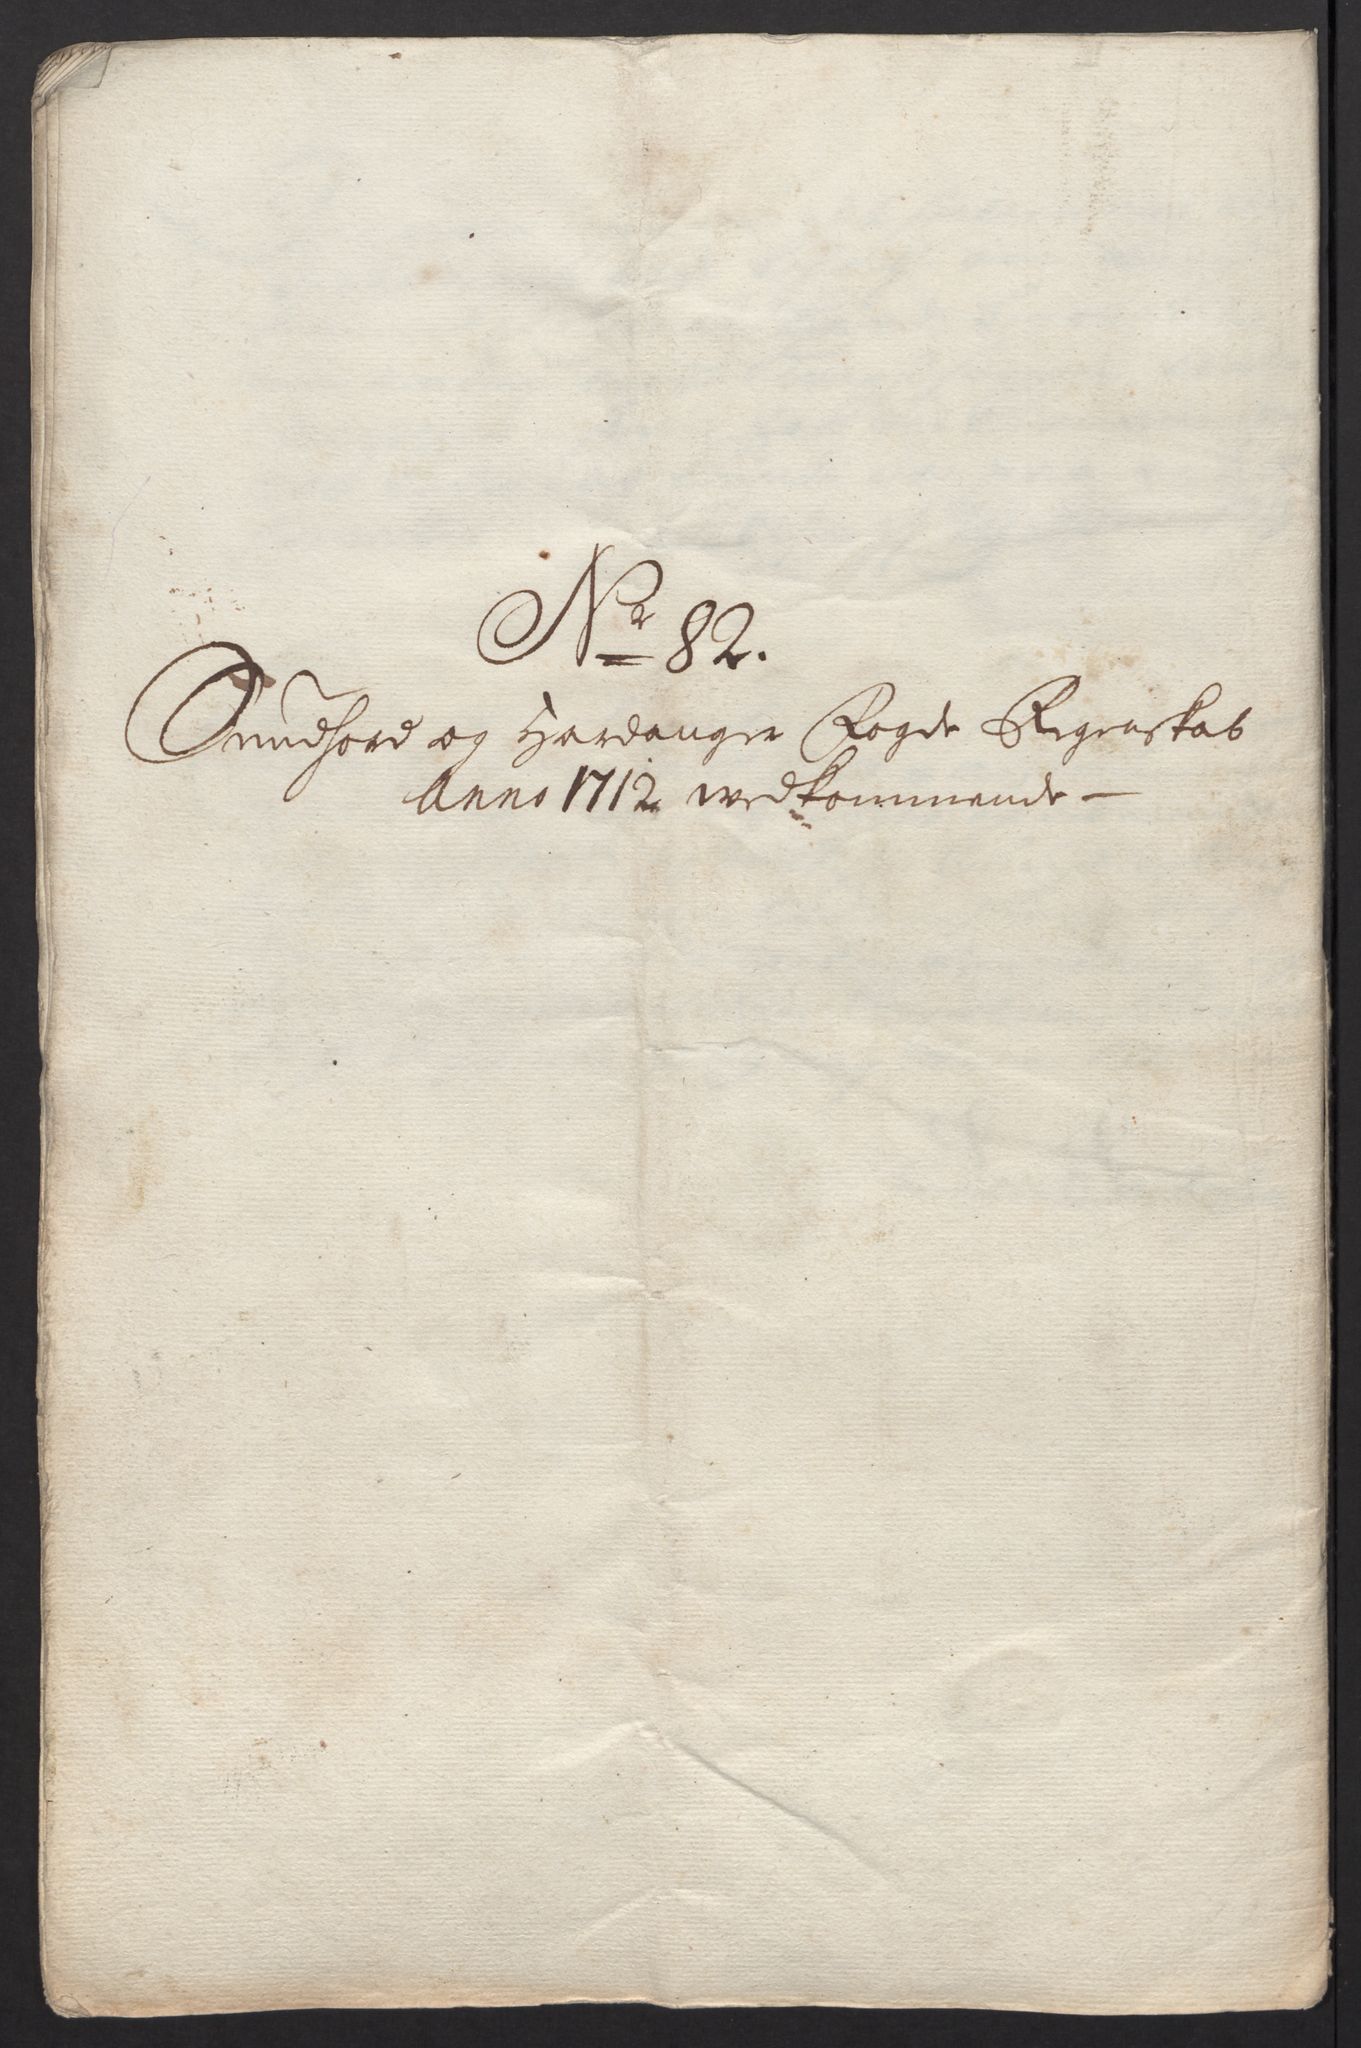 No 82.
Sundhord og Hardanger Fogde Regenskab
Anno 1712 vedkommende —